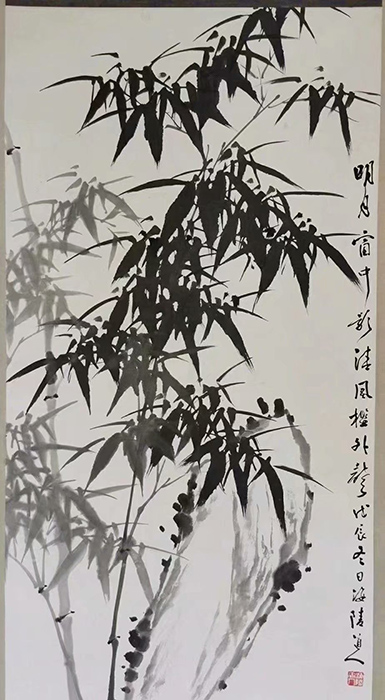 明月窗中影清风槛外声戊辰冬日海陵道人